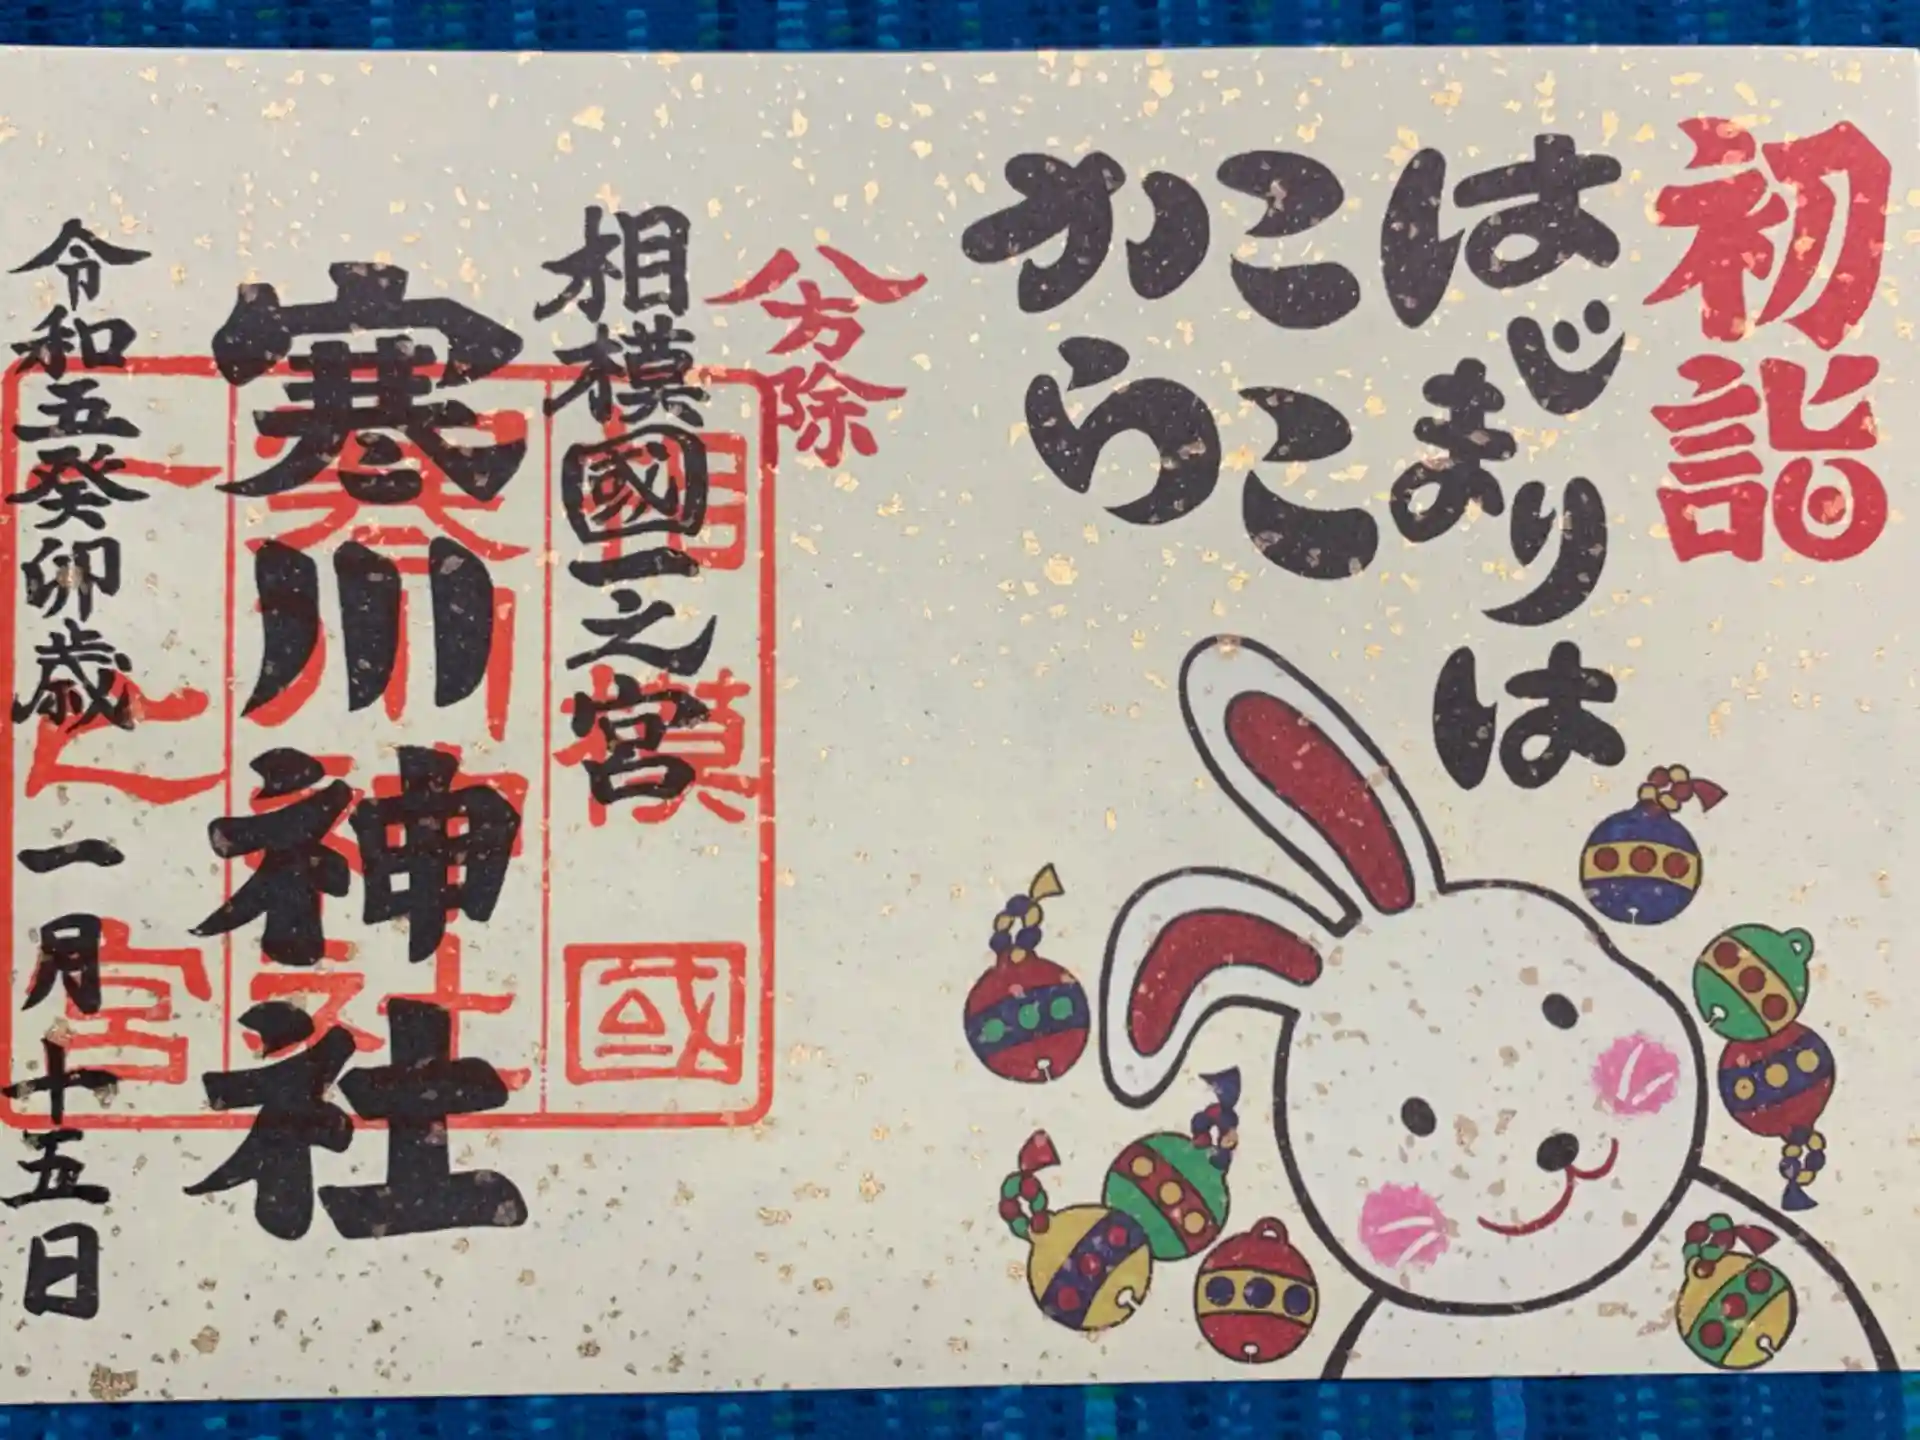 初詣
はじまりは
ここ
から
八方除
相模國一之宮
寒川神社
令和五癸卯歳一月十五日
相模國
寒川神社
一之宮